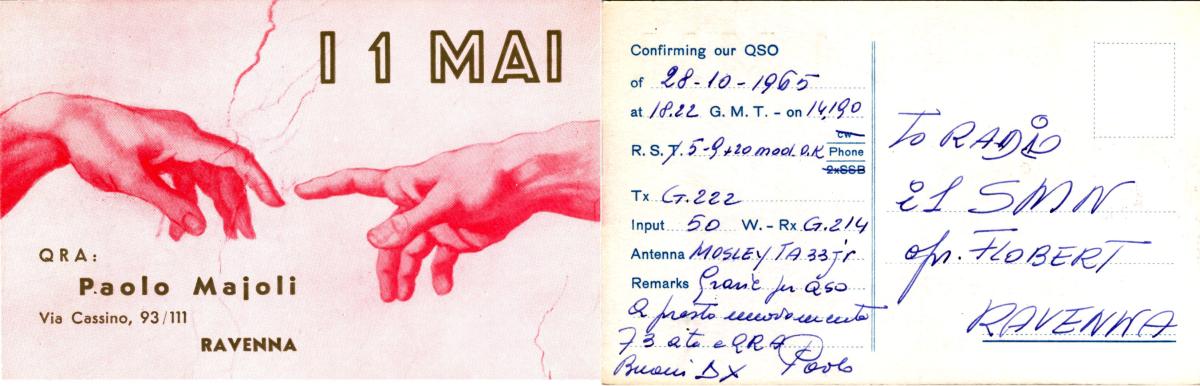 I 1 MAI
QRA:
Paolo Majoli
Via Cassino, 93/111
RAVENNA
Confirming our QSO
of 28-10-1965
at 18.22 G. M. T. - on 14,190
CW
R. S. T. 5-9+20 mod. O.K Phone
2xSSB
Tx G.222
Input 50 W. - Rx G.214
Antenna MOSLEY TA33 jr
Remarks Grazie per QSO
a presto nuovamente
73 a te e QRA
Buoni DX Paolo
To RADIO
i1 SMN
opr. FLOBERT
RAVENNA